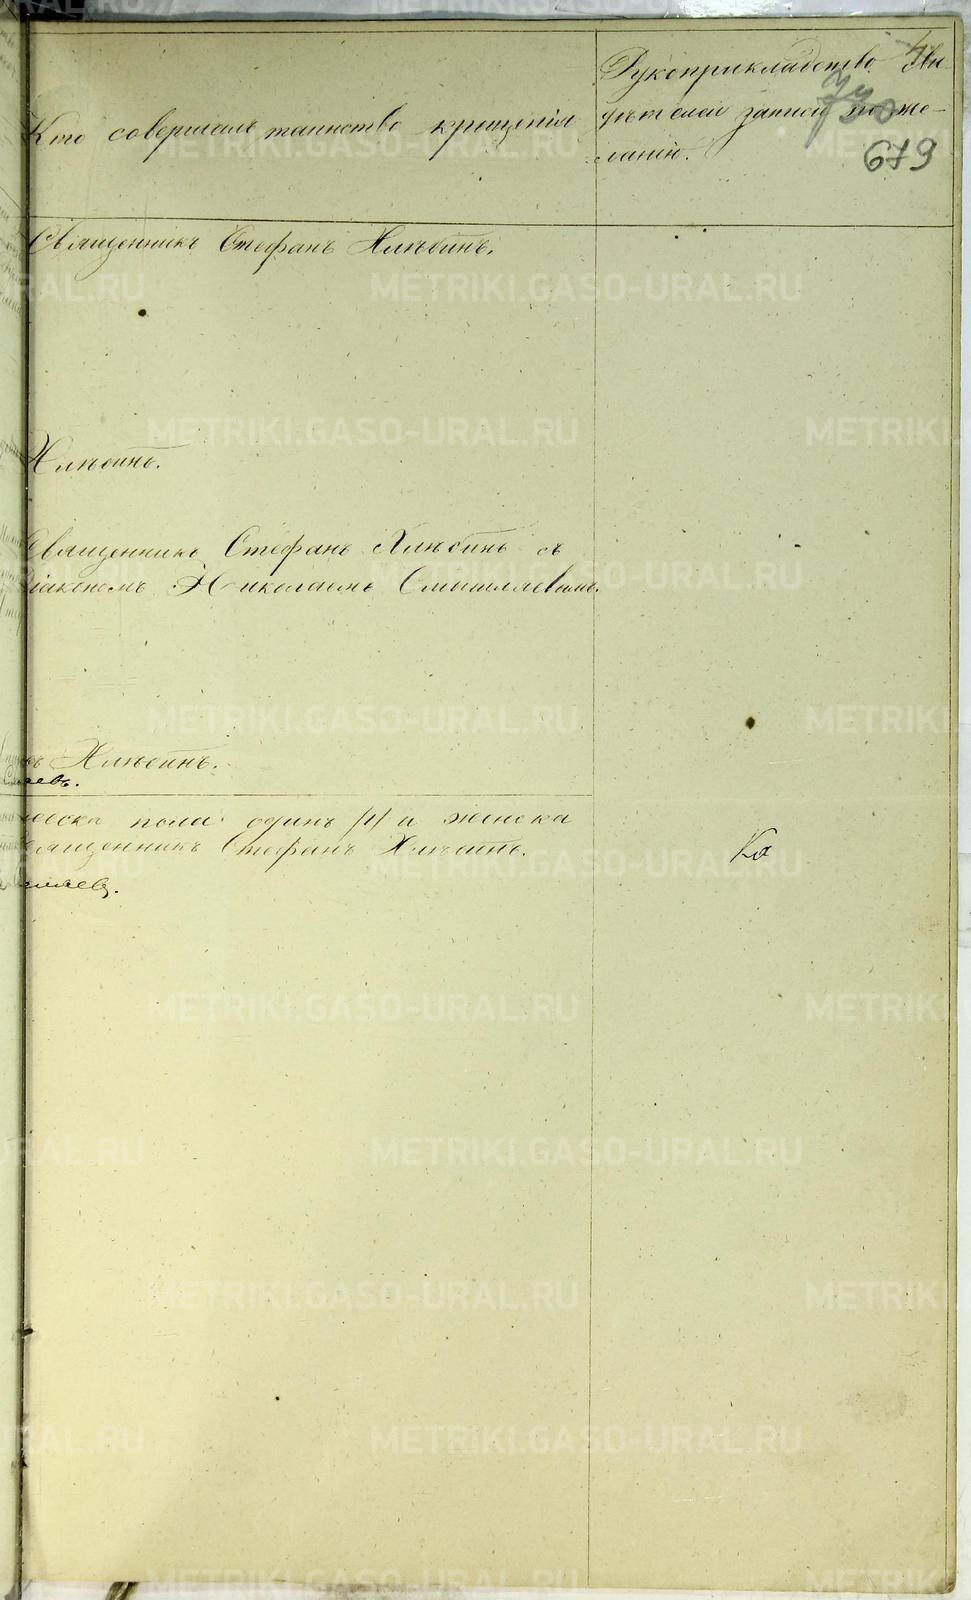 Кто совершалъ таинство крещенія
Рукоприкладство сви-
дѣтелей записи по же-
ланію.
679
Священникъ Стефанъ Хлѣбинъ.
Хлѣбинъ.
Священникъ Стефанъ Хлѣбинъ съ
Діакономъ Николаемъ Смышляевымъ.
Хлѣбинъ.
аевъ.
жеска пола одинъ /1/ и женска
Священникъ Стефанъ Хлѣбинъ.
шляевъ.
Ко
METRIKI.GASO-URAL.RU